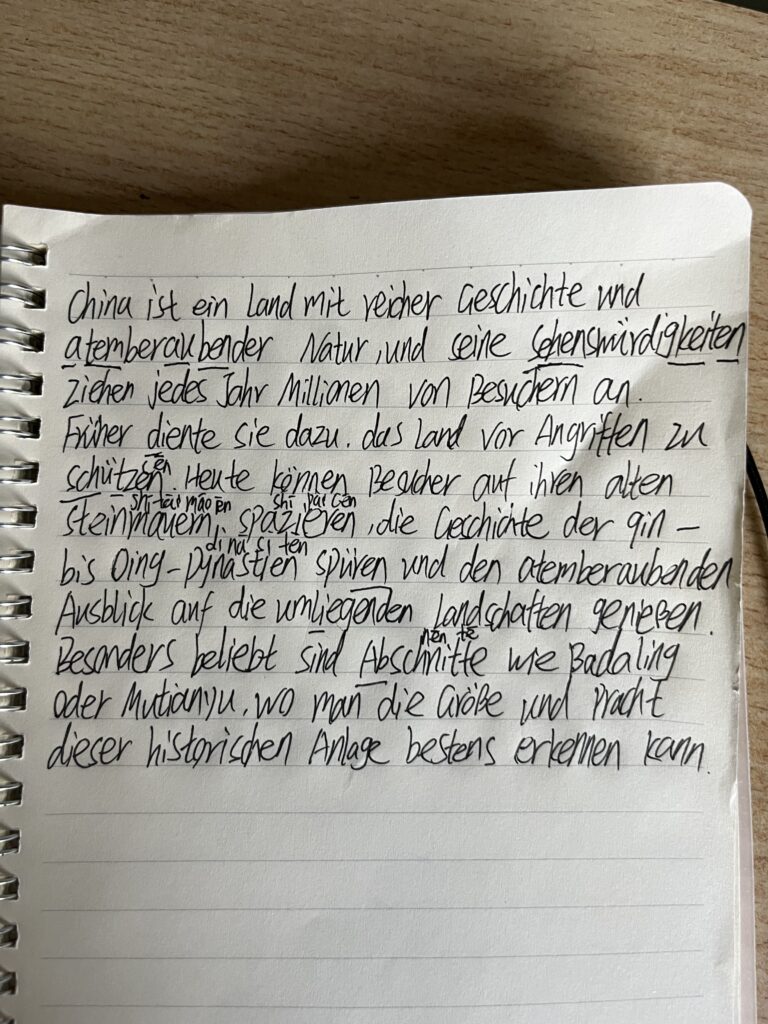 China ist ein Land mit reicher Geschichte und
atemberaubender Natur, und seine Sehenswürdigkeiten
ziehen jedes Jahr Millionen von Besuchern an.
Früher diente sie dazu, das Land vor Angriffen zu
sēn
schützen. Heute können Besucher auf ihren alten
shī tāi māo ēn shī pāi cēn
steinmauern, spazieren, die Geschichte der qin-
dī nā sī tēn
bis Qing-Dynastien spüren und den atemberaubenden
Ausblick auf die umliegenden Landschaften genießen.
nēn tē
Besonders beliebt sind Abschnitte wie Badaling
oder Mutianyu, wo man die Größe und Pracht
dieser historischen Anlage bestens erkennen kann.